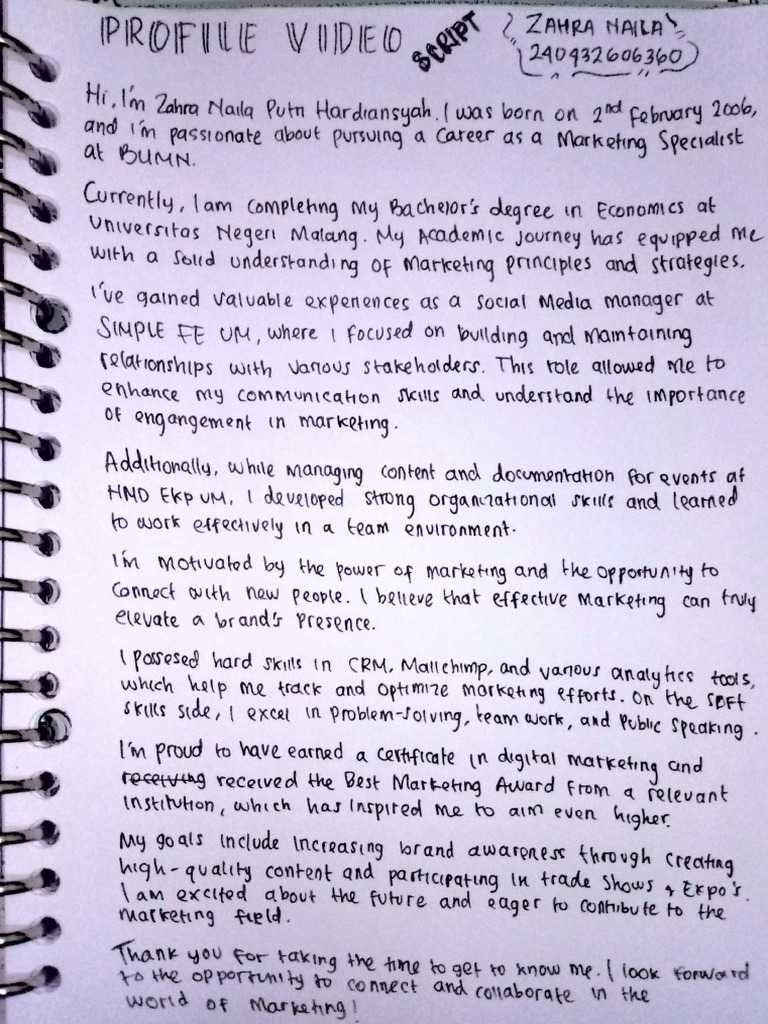 PROFILE VIDEO SCRIPT
ZAHRA NAILA
240432606360
Hi, I'm Zahra Naila Putri Hardiansyah. I was born on 2nd February 2006,
and I'm passionate about pursuing a Career as a Marketing Specialist
at BUMN.
Currently, I am completing My Bachelor's degree in Economics at
Universitas Negeri Malang. My Academic Journey has equipped me
with a solid understanding of Marketing principles and strategies.
I've gained valuable experiences as a Social Media manager at
SIMPLE FE UM, where I focused on building and Maintaining
relationships with various stakeholders. This role allowed me to
enhance my communication skills and understand the importance
of engangement in marketing.
Additionally, while managing content and documentation for events at
HMD EKP UM, I developed strong organizational skills and learned
to work effectively in a team environment.
I'm motivated by the power of marketing and the opportunity to
connect with new people. I believe that effective Marketing can truly
elevate a brand's presence.
I possesed hard skills in CRM, Mailchimp, and various analytics tools,
which help me track and optimize marketing efforts. On the soft
skills side, I excel in problem-solving, team work, and Public Speaking.
I'm proud to have earned a certificate in digital marketing and
receiving received the Best Marketing Award from a relevant
institution, which has inspired me to aim even higher.
My goals include increasing brand awareness through creating
high-quality content and participating in trade shows & Expo's.
I am excited about the future and eager to contribute to the
marketing field.
Thank you for taking the time to get to know me. I look forward
to the opportunity to connect and collaborate in the
world of Marketing!